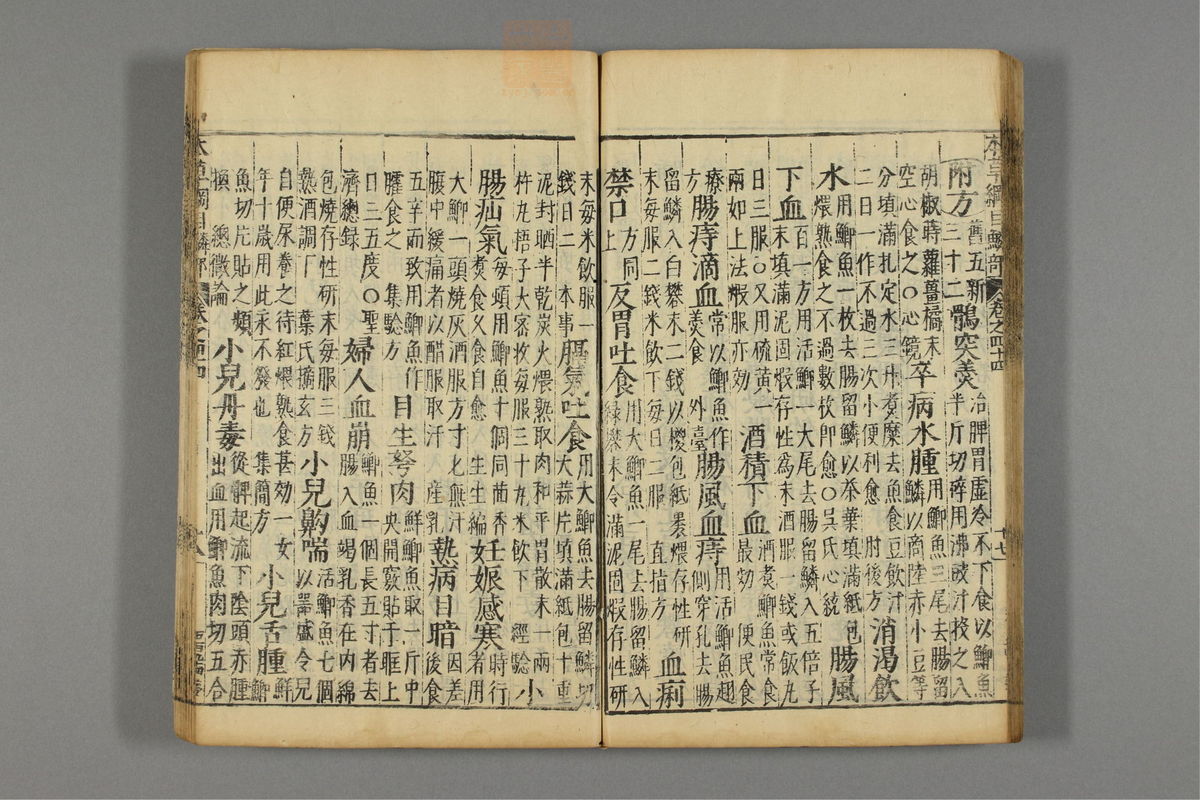 本草綱目鱗部 卷之四十四 十七
附方 舊五新三十二 鶻突羹 治脾胃虛冷不下食以鯽魚半斤切碎用沸豉汁投之入
胡椒蒔蘿薑橘末空心食之○心鏡 卒病水腫 用鯽魚三尾去腸留鱗以商陸赤小豆等
分填滿扎定水三升煮糜去魚食豆飲汁二日一作不過三次小便利愈 肘後方 消渴飲
水 用鯽魚一枚去腸留鱗以茶葉填滿紙包煨熟食之不過數枚即愈○吳氏心統 腸風
下血 百一方用活鯽一大尾去腸留鱗入五倍子末填滿泥固煆存性爲末酒服一錢或飯丸
日三服○又用硫黃一兩如上法煆服亦効 酒積下血 酒煮鯽魚常食最効 便民食
療 腸痔滴血 常以鯽魚作羹食 外臺 腸風血痔 用活鯽魚翅側穿孔去腸
留鱗入白礬末二錢以椶包紙裹煨存性研末每服二錢米飲下每日二服 直指方 血痢
禁口 方同上 反胃吐食 用大鯽魚一尾去腸留鱗入綠礬末令滿泥固煆存性研
末每米飲服一錢日二 本事 膈氣吐食 用大鯽魚去腸留鱗切大蒜片填滿紙包十重
泥封晒半乾炭火煨熟取肉和平胃散末一兩杵丸梧子大密收每服三十丸米飲下 經驗 小
腸疝氣 每頓用鯽魚十個同茴香煮食久食自愈 生生編 妊娠感寒 時行者用
大鯽一頭燒灰酒服方寸匕無汁腹中緩痛者以醋服取汗 產乳 熱病目暗 因差後食
五辛而致用鯽魚作臛食之 集驗方 目生弩肉 鮮鯽魚取一斤中央開竅貼于眶上
日三五度○聖濟總錄 婦人血崩 鯽魚一個長五寸者去腸入血竭乳香在內綿
包燒存性研末每服三錢熱酒調下 葉氏摘玄方 小兒齁喘 活鯽魚七個以器盛令兒
自便尿養之待紅煨熟食甚効一女年十歲用此永不發也 集簡方 小兒舌腫 鮮鯽
魚切片貼之頻換 總微論 小兒丹毒 從髀起流下陰頭赤腫出血用鯽魚肉切五合
本草綱目鱗部 卷之四十四 十八